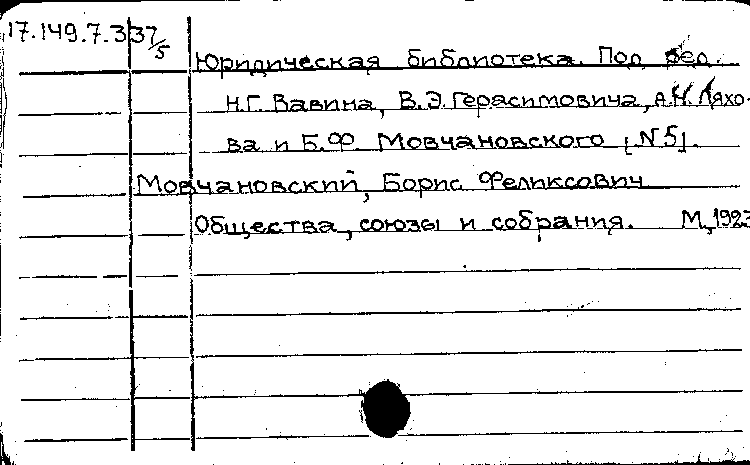 17.149.7.337/5
Юридическая библиотека. Под ред.
Н.Г. Вавина, В.Э. Герасимовича, А.Н. Ляхо-
ва и Б.Ф. Мовчановского [N 5].
Мовчановский, Борис Феликсович
Общества, союзы и собрания. М., 1923